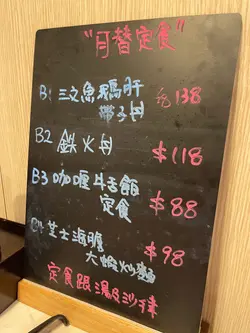 "月替定食"
B1 三文魚鵝肝 $138
帶子丼
B2 鉄火丼 $118
B3 咖喱牛舌飯
定食 $88
B4 芝士海膽 $98
大蝦炒麵
定食跟湯及沙律